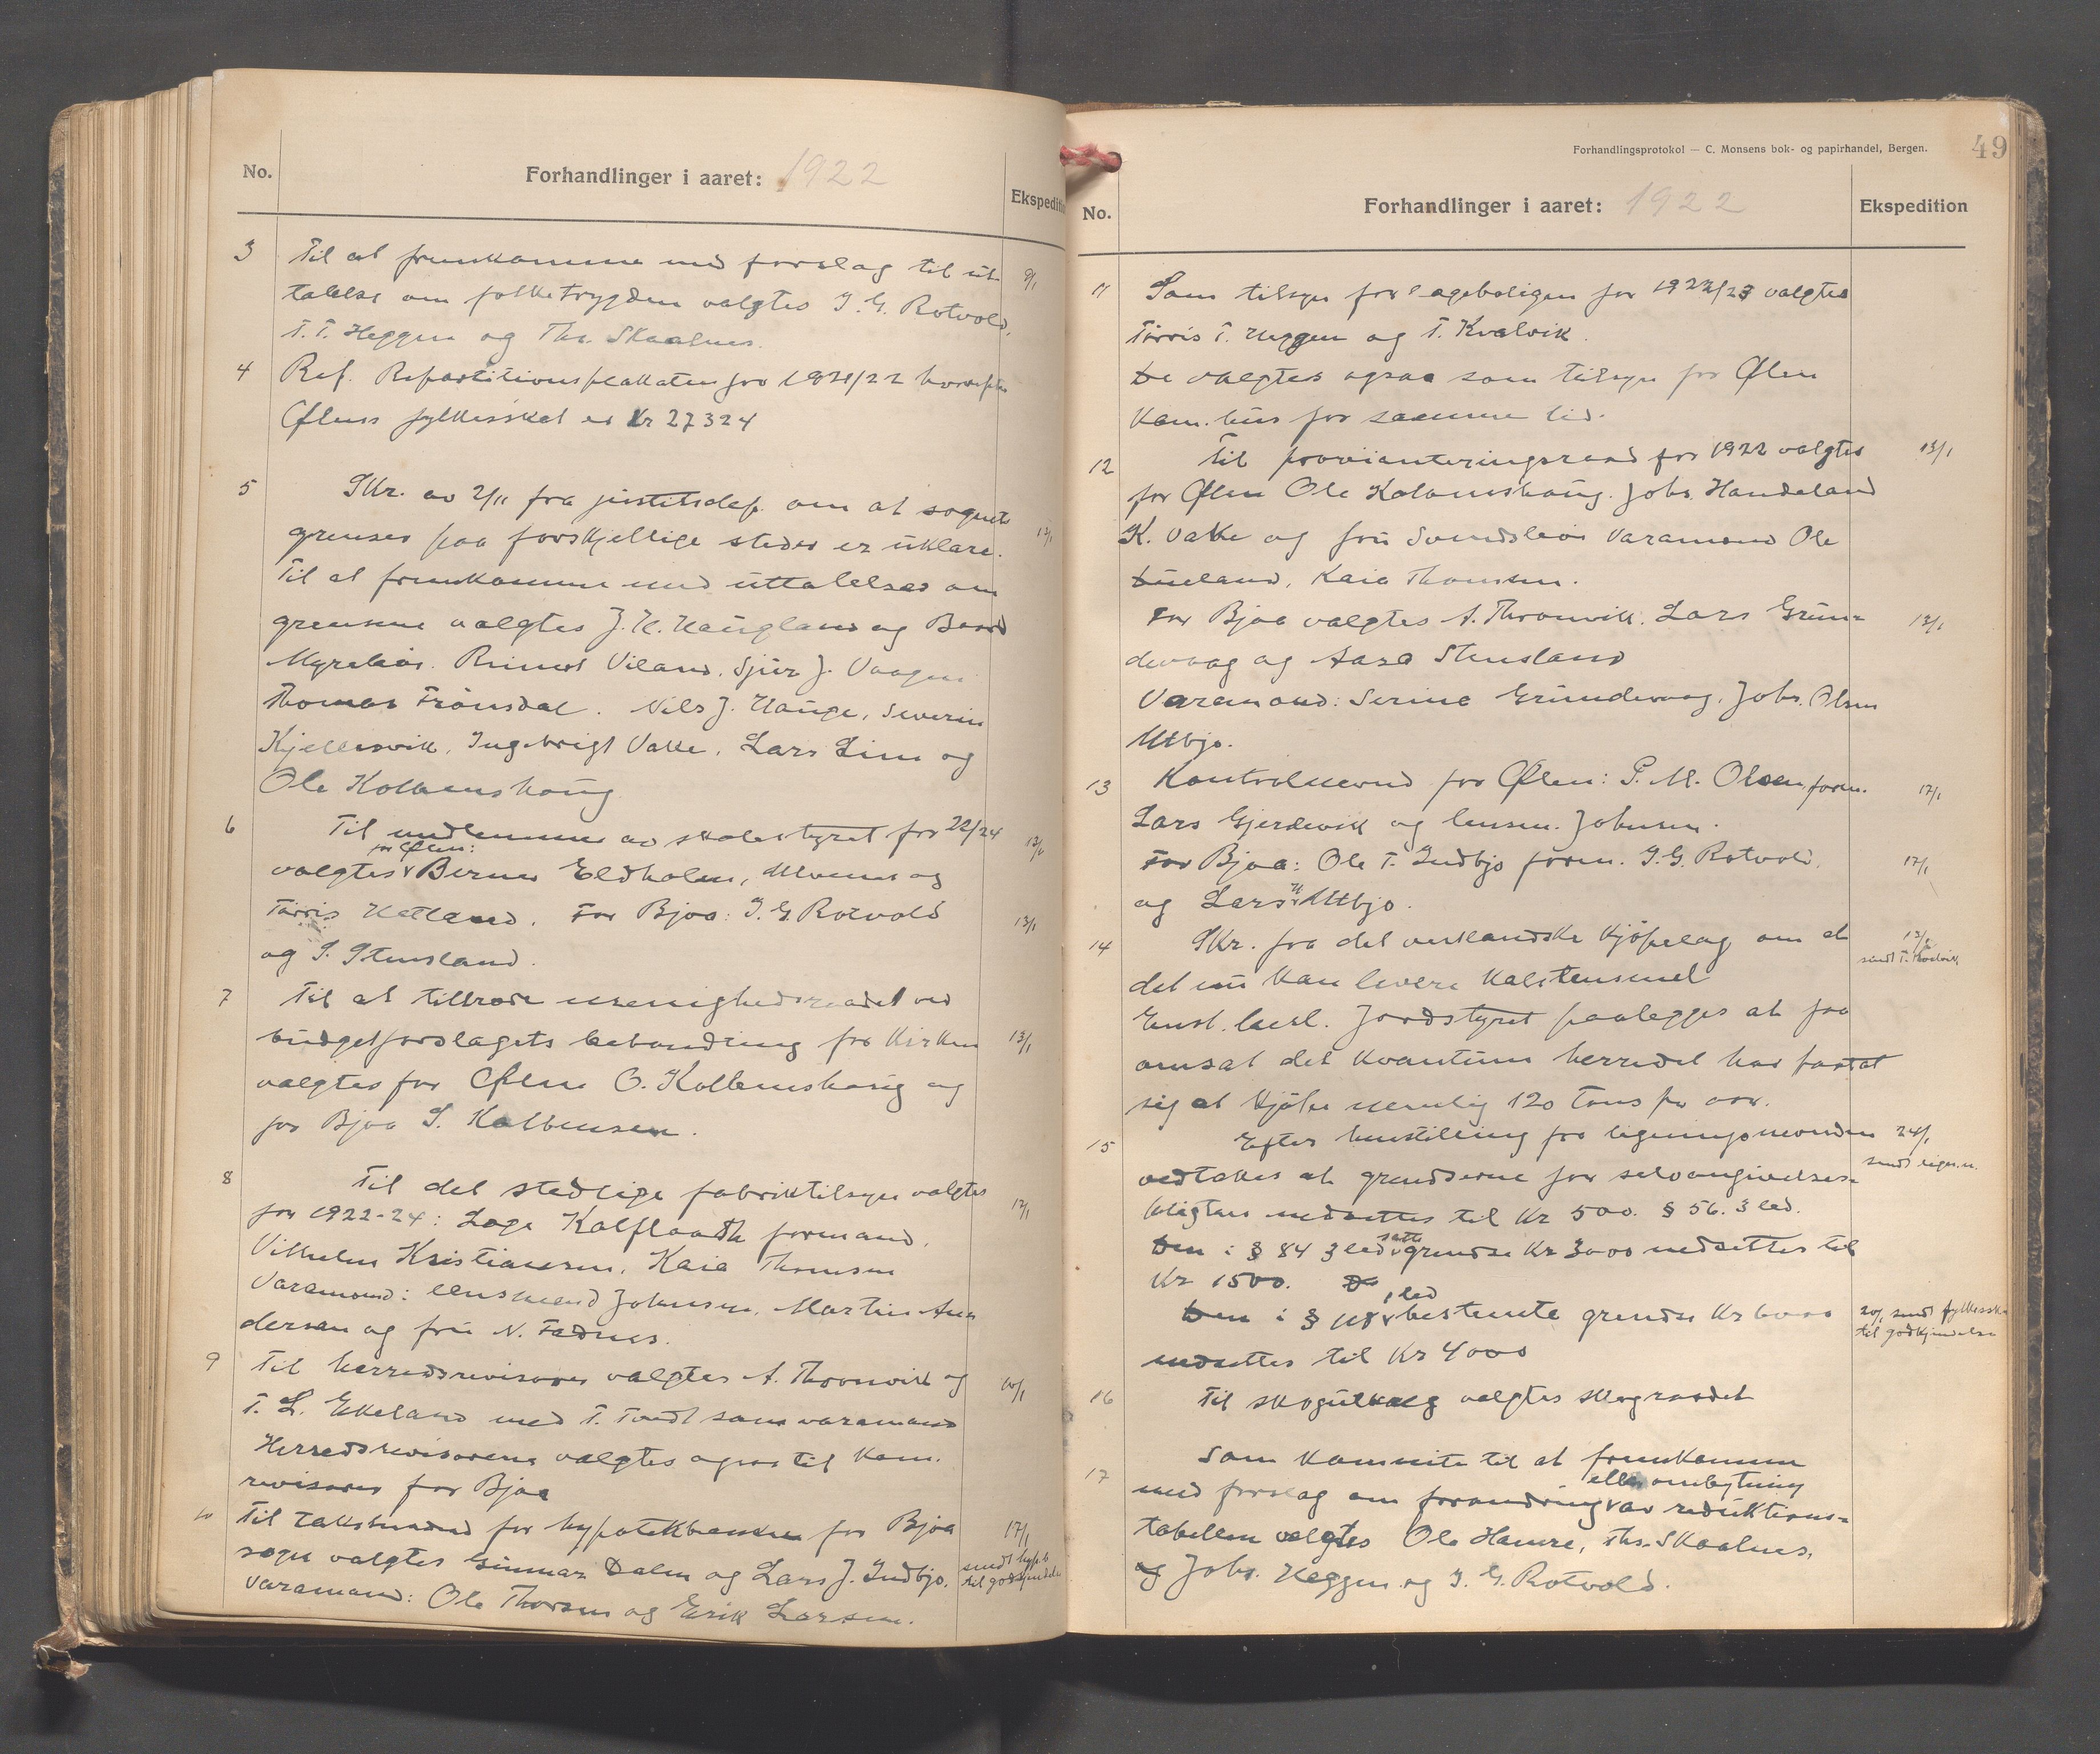 No.
Forhandlinger i aaret: 1922
Ekspedition
3 Til at fremkomme med forslag til ut- 9/1
talelse om folketrygden valgtes I. G. Rotvold,
T. T. Heggen og Ths. Skaalnes.
4 Ref. Repartitionsplakaten for 1921/22 hvorefter
Ølens fylkesskat er Kr 27324
5 Skr. av 2/11 fra justitsdep. om at sognets
grenser paa forskjellige steder er uklare. 13/1
Til at fremkomme med uttalelser om
grensene valgtes J. H. Haugland og Baard
Myreleir. Rimert Viland. Sjur J. Vaagen
Thomas Frønsdal. Nils J. Hauge, Severin
Kjellesvik, Ingebrigt Vatte, Lars Lim og
Ole Kolbenshaug
6 Til medlemmer av skolestyret for 22/24 13/1
for Ølen:
valgtes Berner Eldholm, Alvener og
Tørris Hetland. For Bjoa: I. G. Rotvold 13/1
og S. Stensland.
7 Til at tiltræde menighedsraadet ved
budgetforslagets behandling for Kirken 13/1
valgtes for Ølen O. Kolbenshaug og
for Bjoa S. Kolbensen.
8 Til det stedlige fabriktilsyn valgtes 12/1
for 1922-24: Lage Kalflaath formand.
Vilhelm Kristiansen, Kaia Thomsen
Varamænd: lensmand Johnsen, Martin An-
dersen og fru N. Fadnes.
9 Til herredsrevisorer valgtes A. Thronvik og 10/1
T. L. Ekeland med T. Tendt som varamand
Herredsrevisorene valgtes ogsaa til kom.
revisorer for Bjoa
10 Til takstmænd for hypotekbanken for Bjoa 17/1
sogn valgtes Gunnar Dalen og Lars J. Indbjo. sendt hyp.b. til godkjendelse
Varamænd: Ole Thorsen og Erik Larsen.
Forhandlingsprotokol — C. Monsens bok- og papirhandel, Bergen.
49
No.
Forhandlinger i aaret: 1922
Ekspedition
11 Som tilsyn for lægeboligen for 1922/23 valgtes
Tørris T. Heggen og T. Kvalvik.
De valgtes ogsaa som tilsyn for Ølen
kom.hus for samme tid.
12 Til provianteringsraad for 1922 valgtes 13/1
for Ølen Ole Kolbenshaug. Johs. Handeland
K. Vatte og fru Svendsbøe Varamænd Ole
Dueland, Kaia Thomsen.
For Bjoa valgtes A. Thronvik. Lars Grun- 13/1
devaag og Aasa Stensland
Varamænd: Serina Grundevaag, Johs. Olsen
Utbjo.
13 Kontrolnevnd for Ølen: P. M. Olsen, form. 17/1
Lars Gjerdevik og lensm. Johnsen.
For Bjoa: Ole T. Indbjo form. I. G. Rotvold. 17/1
og Lars H. Utbjo.
14 Skr. fra det vestlandske Kjøpelag om at 13/1
sendt T. Kvalvik
det nu kan levere kalkstensmel
Enst. besl. Jordstyret paalegges at faa
omsat det kvantum herredet har fastsat
sig at kjøpe nemlig 120 tons pr aar.
15 Efter henstilling fra ligningsnevnden 24/1
vedtakes at grendserne for selvangivelses- sendt lign.n.
pligten nedsettes til Kr 500. § 56. 3 led.
Den i § 84 3 led satte grendse Kr 3000 nedsettes til
Kr 1500. De
Den i § 118 1 led bestemte grendse Kr 6000 20/1 sendt fylkessk.
til godkjendelse
nedsettes til Kr 4000
16 Til skogutvalg valgtes skograadet
17 Som komite til at fremkomme
med forslag om forandring eller ombytning av reduktions-
tabellen valgtes Ole Hamre, Ths. Skaalnes,
og Johs. Heggen og I. G. Rotvold.